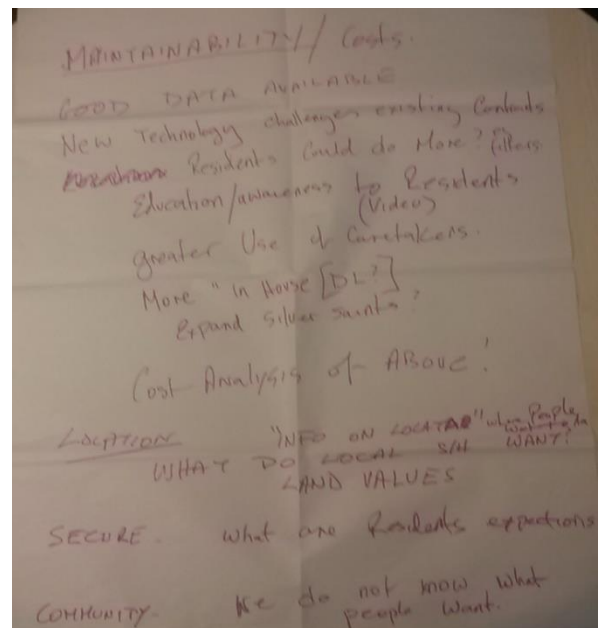 MAINTAINABILITY/ Costs.
GOOD DATA AVAILABLE
New Technology challenges existing Contracts
Residents Could do More? Filters
Education/awareness to Residents
(Video)
greater Use of Caretakers.
More "In House [DL?]
Expand Silver Saints?
Cost Analysis of ABOVE!
LOCATION "INFO ON LOCATAO" when People
WHAT DO LOCAL S/H WANT?
LAND VALUES
SECURE. What are Residents expections
COMMUNITY. We do not know what
people want.